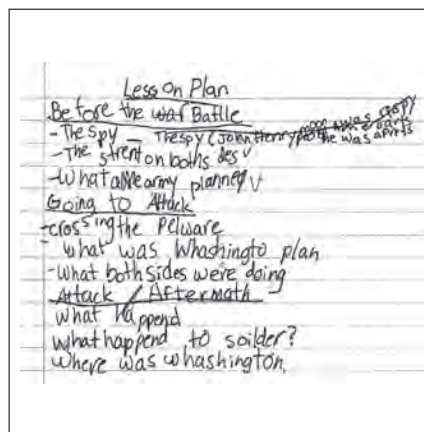 Lesson Plan
Before the war Battle
- The spy - The spy (John Henry was a spy
- The strent on both s des he was a
- What alle army planned
Going to Attack
- crossing the Pelware
what was Whashingto plan
- what both sides were doing
Attack / Aftermath
what happend
what happend to soilder?
where was whashington.